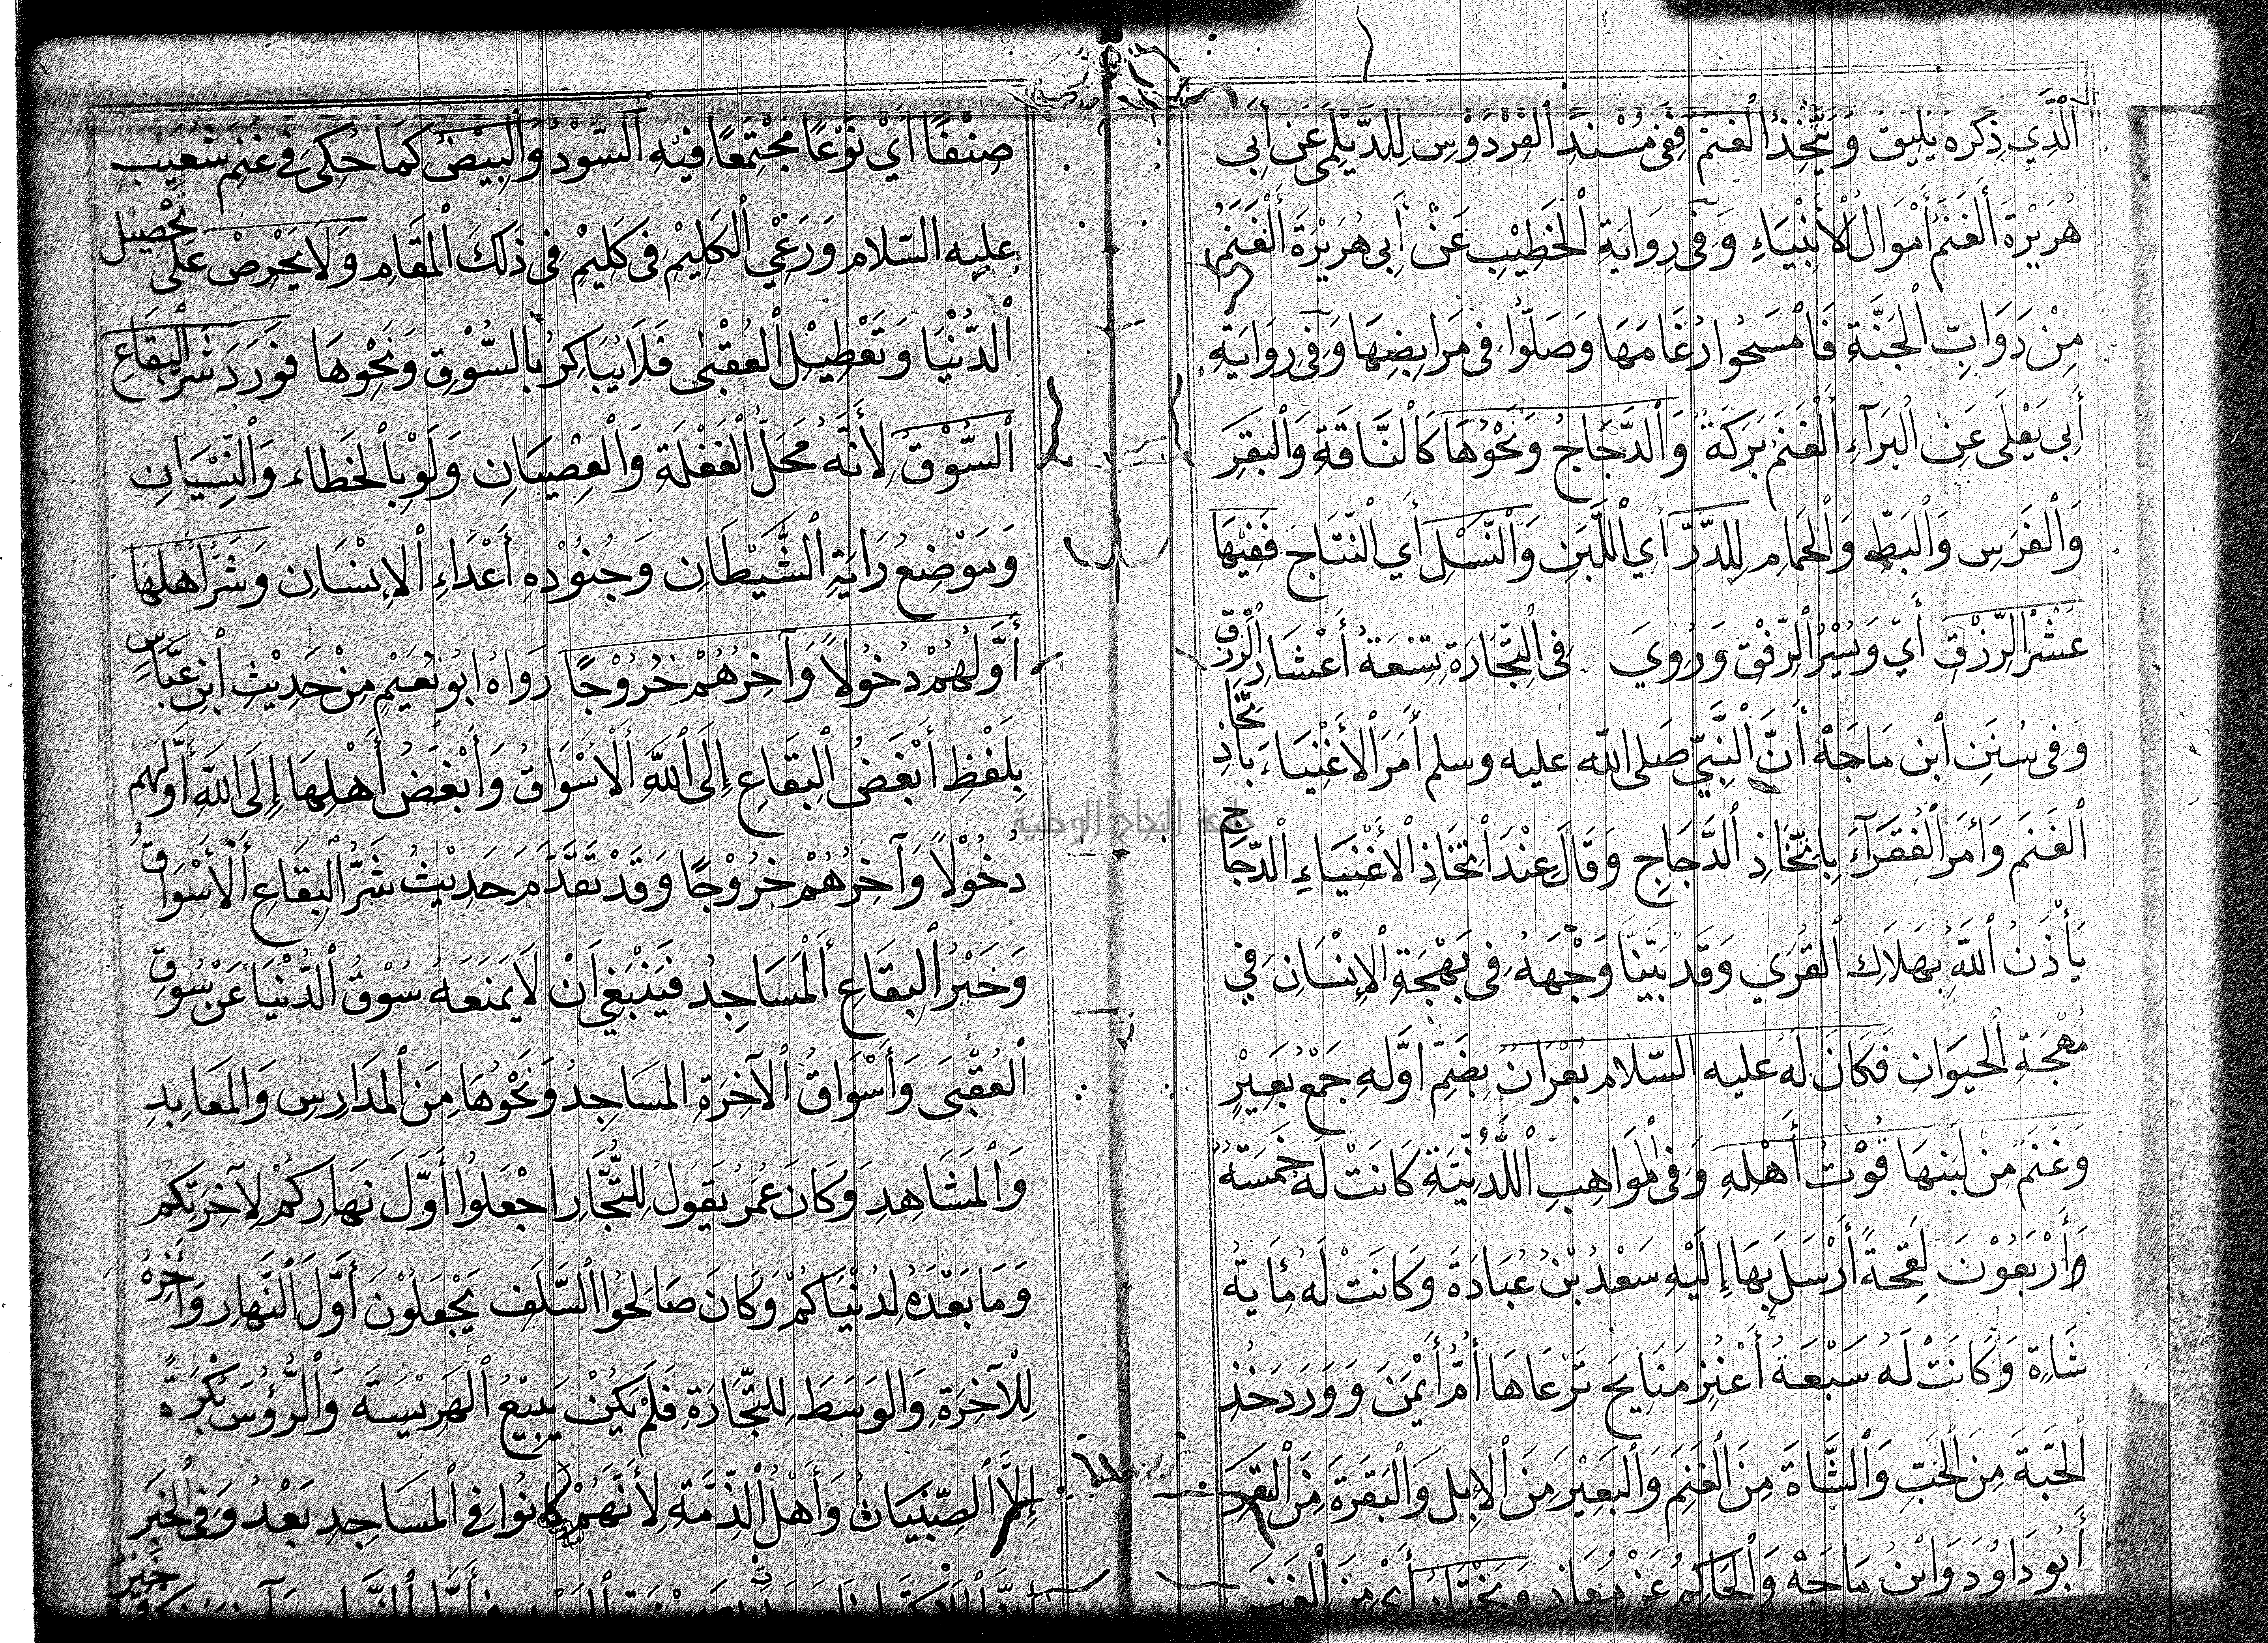 الَّذِي ذِكرهُ يُليقُ وَيَتَّخِذُ الغنَمَ فَفِى مُسْنَدِ الفِرْدَوْسِ لِلدَّيْلَمِى عَن أبى
هُرَيْرَةَ ألغَنَمُ أمْوَالُ الأنْبِيَاءِ وَفى رِوَايَةِ الخَطِيْبِ عَنْ أبى هُرَيْرَةَ ألْغَنَمُ
مِنْ دَوَابِّ الجَنَّةِ فَامْسَحُوا رُغَامَهَا وَصَلُّوا فى مَرَابِضِهَا وَفِى رِوَايَةِ
أبى يَعْلَى عَنِ البَرَآءِ ألْغَنَمُ بَرَكَةٌ وَالدَّجَاجُ وَنَحْوُهَا كَالنَّاقَةِ وَالبَقَرِ
وَالْفَرَسِ وَالْبَطِّ وَالْحَمَامِ لِلدَّرِّ أي اللَّبَنِ وَالنَّسْلِ أي النّتَاجِ فَفِيْهَا
عَشْرُ الرِّزْقِ أيْ وَيُسْرُ الرِّفْقِ وَرُوِيَ فى التِّجَارَةِ تِسْعَةُ أعْشَارِ الرِّزق
وَفى سُنَنِ ابن مَاجَهْ أنَّ النَّبِيّ صَلى الله عليه وسلم أمَرَ الأغْنِيَاءَ بِاتّخَاذِ
الغَنَم وَأمَرَ الفُقَرَآءَ بِاتِّخَاذِ الدَّجَاجِ وَقَالَ عِنْدَ اتّخَاذِ الأغْنِيَاءِ الدّجَاج
يَأْذَنُ اللَّهُ بِهَلَاكِ القُرَي وَقَد بَيَّنَّا وَجْهَهُ فى بَهْجَةِ الإنْسَانِ في
مُهْجَةِ الحيوَانِ فَكَانَ لَهُ عليه السّلام بُعْرَانٌ بِضَمِّ أوَّلهِ جَمْعُ بَعِيْرٍ
وَغَنَمٌ مِنْ لَبَنِهَا قُوْتُ أهْلِهِ وَفى المَوَاهِبِ اللَّدُنِّيَّةِ كَانَتْ لَهُ خَمْسَةٌ
وَأرْبَعُوْنَ لِقْحَةً أرْسَلَ بِهَا إلَيْهِ سَعْدُ بْنُ عُبَادَةَ وَكَانَتْ لَهُ مِأَيةُ
شَاةٍ وَكَانَتْ لَهُ سَبْعَةُ أعْنُزٍ مَنَايحَ تَرْعَاهَا أمُّ أيْمَنَ وَوَرَدَ خُذِ
الحَبَّةَ مِنَ الحَبِّ وَالشَّاةَ مِنَ الغَنَمِ وَالبَعِيْرَ مِنَ الإبِلِ وَالبَقَرَةَ مِنَ البَقَرِ
أبُو دَاوُدَ وَابْنُ مَاجَهْ وَالحَاكِمُ عَنْ مُعَاذ وَيَخْتَارُ أي مِنَ الغَنَمِ
صِنْفًا أيْ نَوْعًا مُجْتَمِعًا فيْهِ السّوْدُ وَالبِيْضُ كمَا حُكِىَ فى غَنَمِ شُعَيْبٍ
عليه السّلام وَرَعْىِ الكَلِيْمِ فى كَلِيْمٍ فى ذَلِكَ الْمَقَامِ وَلَا يَحْرِصُ عَلَى تَحْصِيْلِ
الدُّنْيَا وَتَعْطِيْلِ العُقْبٰى فَلَا يُبَاكِرُ بِالسُّوْقِ وَنَحْوِهَا فَوَرَدَ شَرُّ البِقَاعِ
السُّوْقُ لِأنَّهُ مَحَلُّ الْغَفْلَةِ وَالْعِصْيَانِ وَلَوْ بِالخَطَاء وَالنِّسْيَانِ
وَمَوْضِعُ رَايَةِ الشَّيْطَانِ وَجُنُوْدِهِ أعْدَاءِ الإنْسَانِ وَشَرُّ أهْلِهَا
أوَّلُهُمْ دُخُولاً وَآخِرُهُمْ خُرُوْجًا رَوَاهُ أبُو نُعَيْمٍ مِنْ حَدِيْثِ ابْنِ عَبَّاسٍ
بِلَفْظِ أبْغَضُ البِقَاعِ إلَى اللَّهِ ألأسْوَاقُ وَأبْغَضُ أهْلِهَا إلَى اللَّهِ أوَّلُهُمْ
دُخُوْلاً وَآخِرُهُمْ خُرُوْجًا وَقَدْ تَقَدَّمَ حَدِيْثُ شَرُّ البِقَاعِ ألأسْوَاقُ
وَخَيْرُ البِقَاعِ ألْمَسَاجِدُ فَيَنْبَغِي أنْ لَا يَمْنَعَهُ سُوْقُ الدُّنْيَا عَنْ سُوْقِ
العُقْبَى وَأسْوَاقُ الآخِرَةِ المسَاجِدُ وَنَحْوُهَا مِنَ المَدَارِسِ وَالمَعَابِدِ
وَالْمَشَاهِدِ وَكَانَ عُمَرُ يَقُولُ لِلتُّجَّارِ اجْعَلُوا أوَّلَ نَهَارِكُمْ لِآخِرَتِكُمْ
وَمَا بَعْدَهُ لِدُنْيَاكُمْ وَكَانَ صَالحُوا السَّلَفِ يَجْعَلُوْنَ أوَّلَ النَّهَارِ وَآخِرَهُ
لِلْآخِرَةِ وَالوَسَطَ لِلتِّجَارَةِ فَلَمْ يَكُنْ يَبِيْعُ الهَرِيْسَةَ وَالرُّؤُسَ بُكْرَةً
إلَّا الصِّبْيَانُ وَأهْلُ الذِّمَّةِ لِأنَّهُمْ كَانُوا فى المسَاجِدِ بَعْدُ وَفى الخَبَرِ